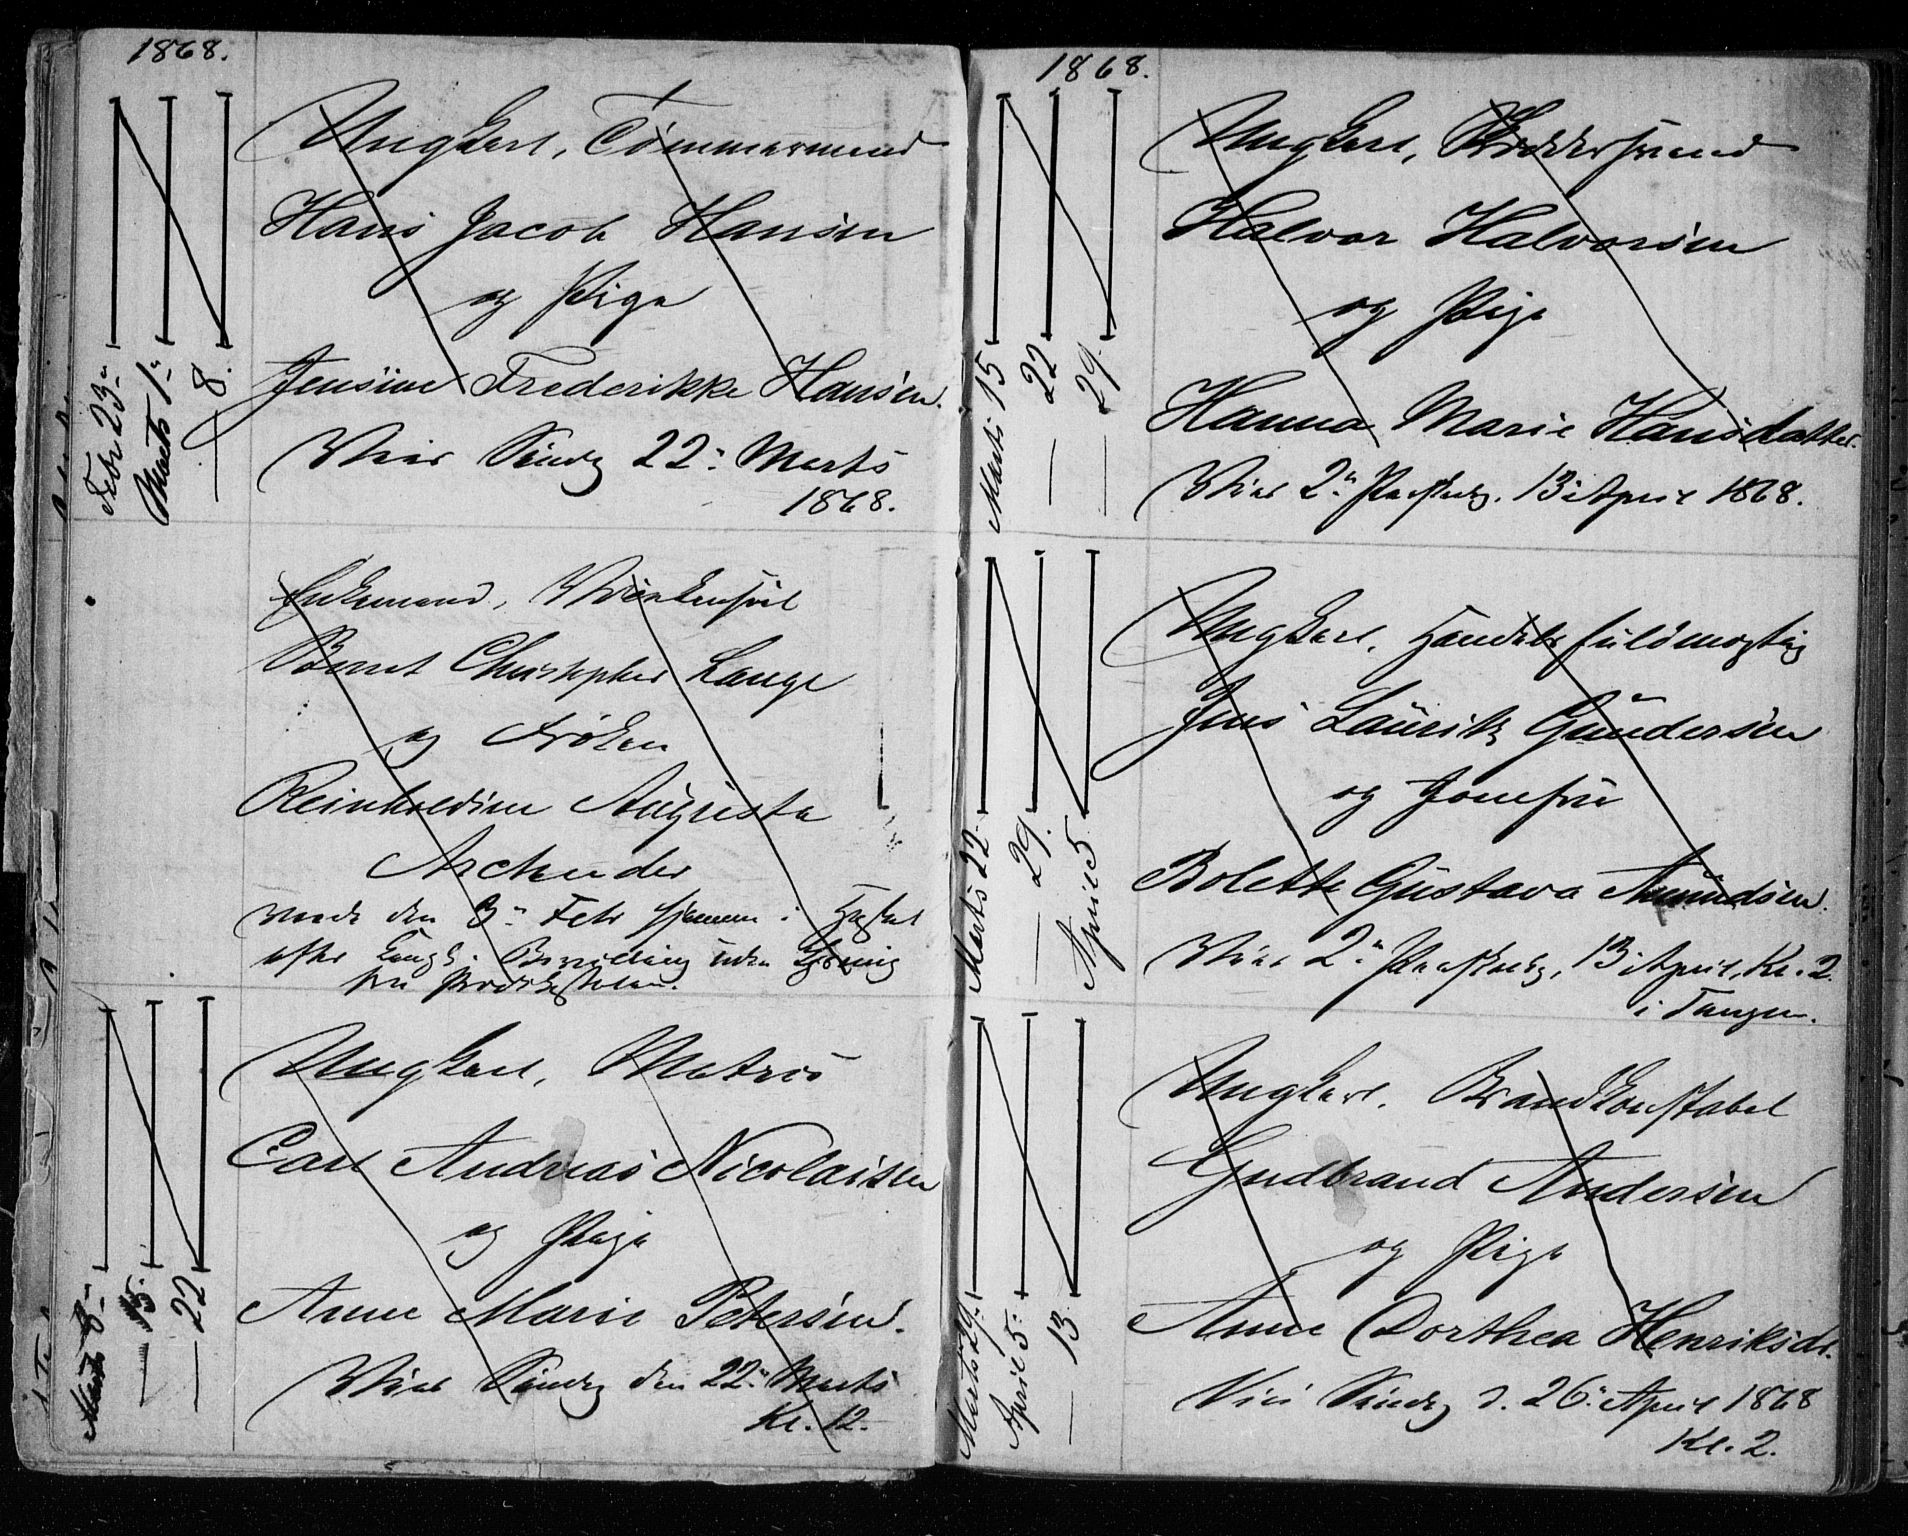 1868.
Febr 23.
Marts 1.
— 8.
Ungkarl, Tømmermand
Hans Jacob Hansen
og Pige
Jensine Frederikke Hansen.
Vies Søndg 22. Marts
1868.
Enkemand,
Bernt Christopher Lange
og Frøken
Reinholdine Augusta
viede den 3. Febr hjemme i
efter Kongl. Bevilling uden Lysning
fra Prædikestolen.
Marts 8.
— 15.
— 22
Ungkarl, Matros
Carl Andreas Nicolaisen
og Pige
Anne Marie Petersen.
Vies Søndg den 22. Marts
Kl. 12.
1868.
Marts 15
— 22
— 29.
Ungkarl,
Halvor Halvorsen
og Pige
Hanna Marie Hansdatter.
Vies 2. Paaskedg. 13 April 1868.
Marts 22.
— 29.
April 5.
Ungkarl, Handelsfuldmægtig
Jens Lauritz Gundersen
og Jomfru
Bolette Gustava Amundsen.
Vies 2. Paaskedg, 13 April, Kl. 2.
i Tangen.
Marts 29.
April 5.
— 13.
Ungkarl, Brandkonstabel
Gudbrand Andersen
og Pige
Anne Dorthea Henriksdr.
Vies Søndg d. 26. April 1868
Kl. 2.